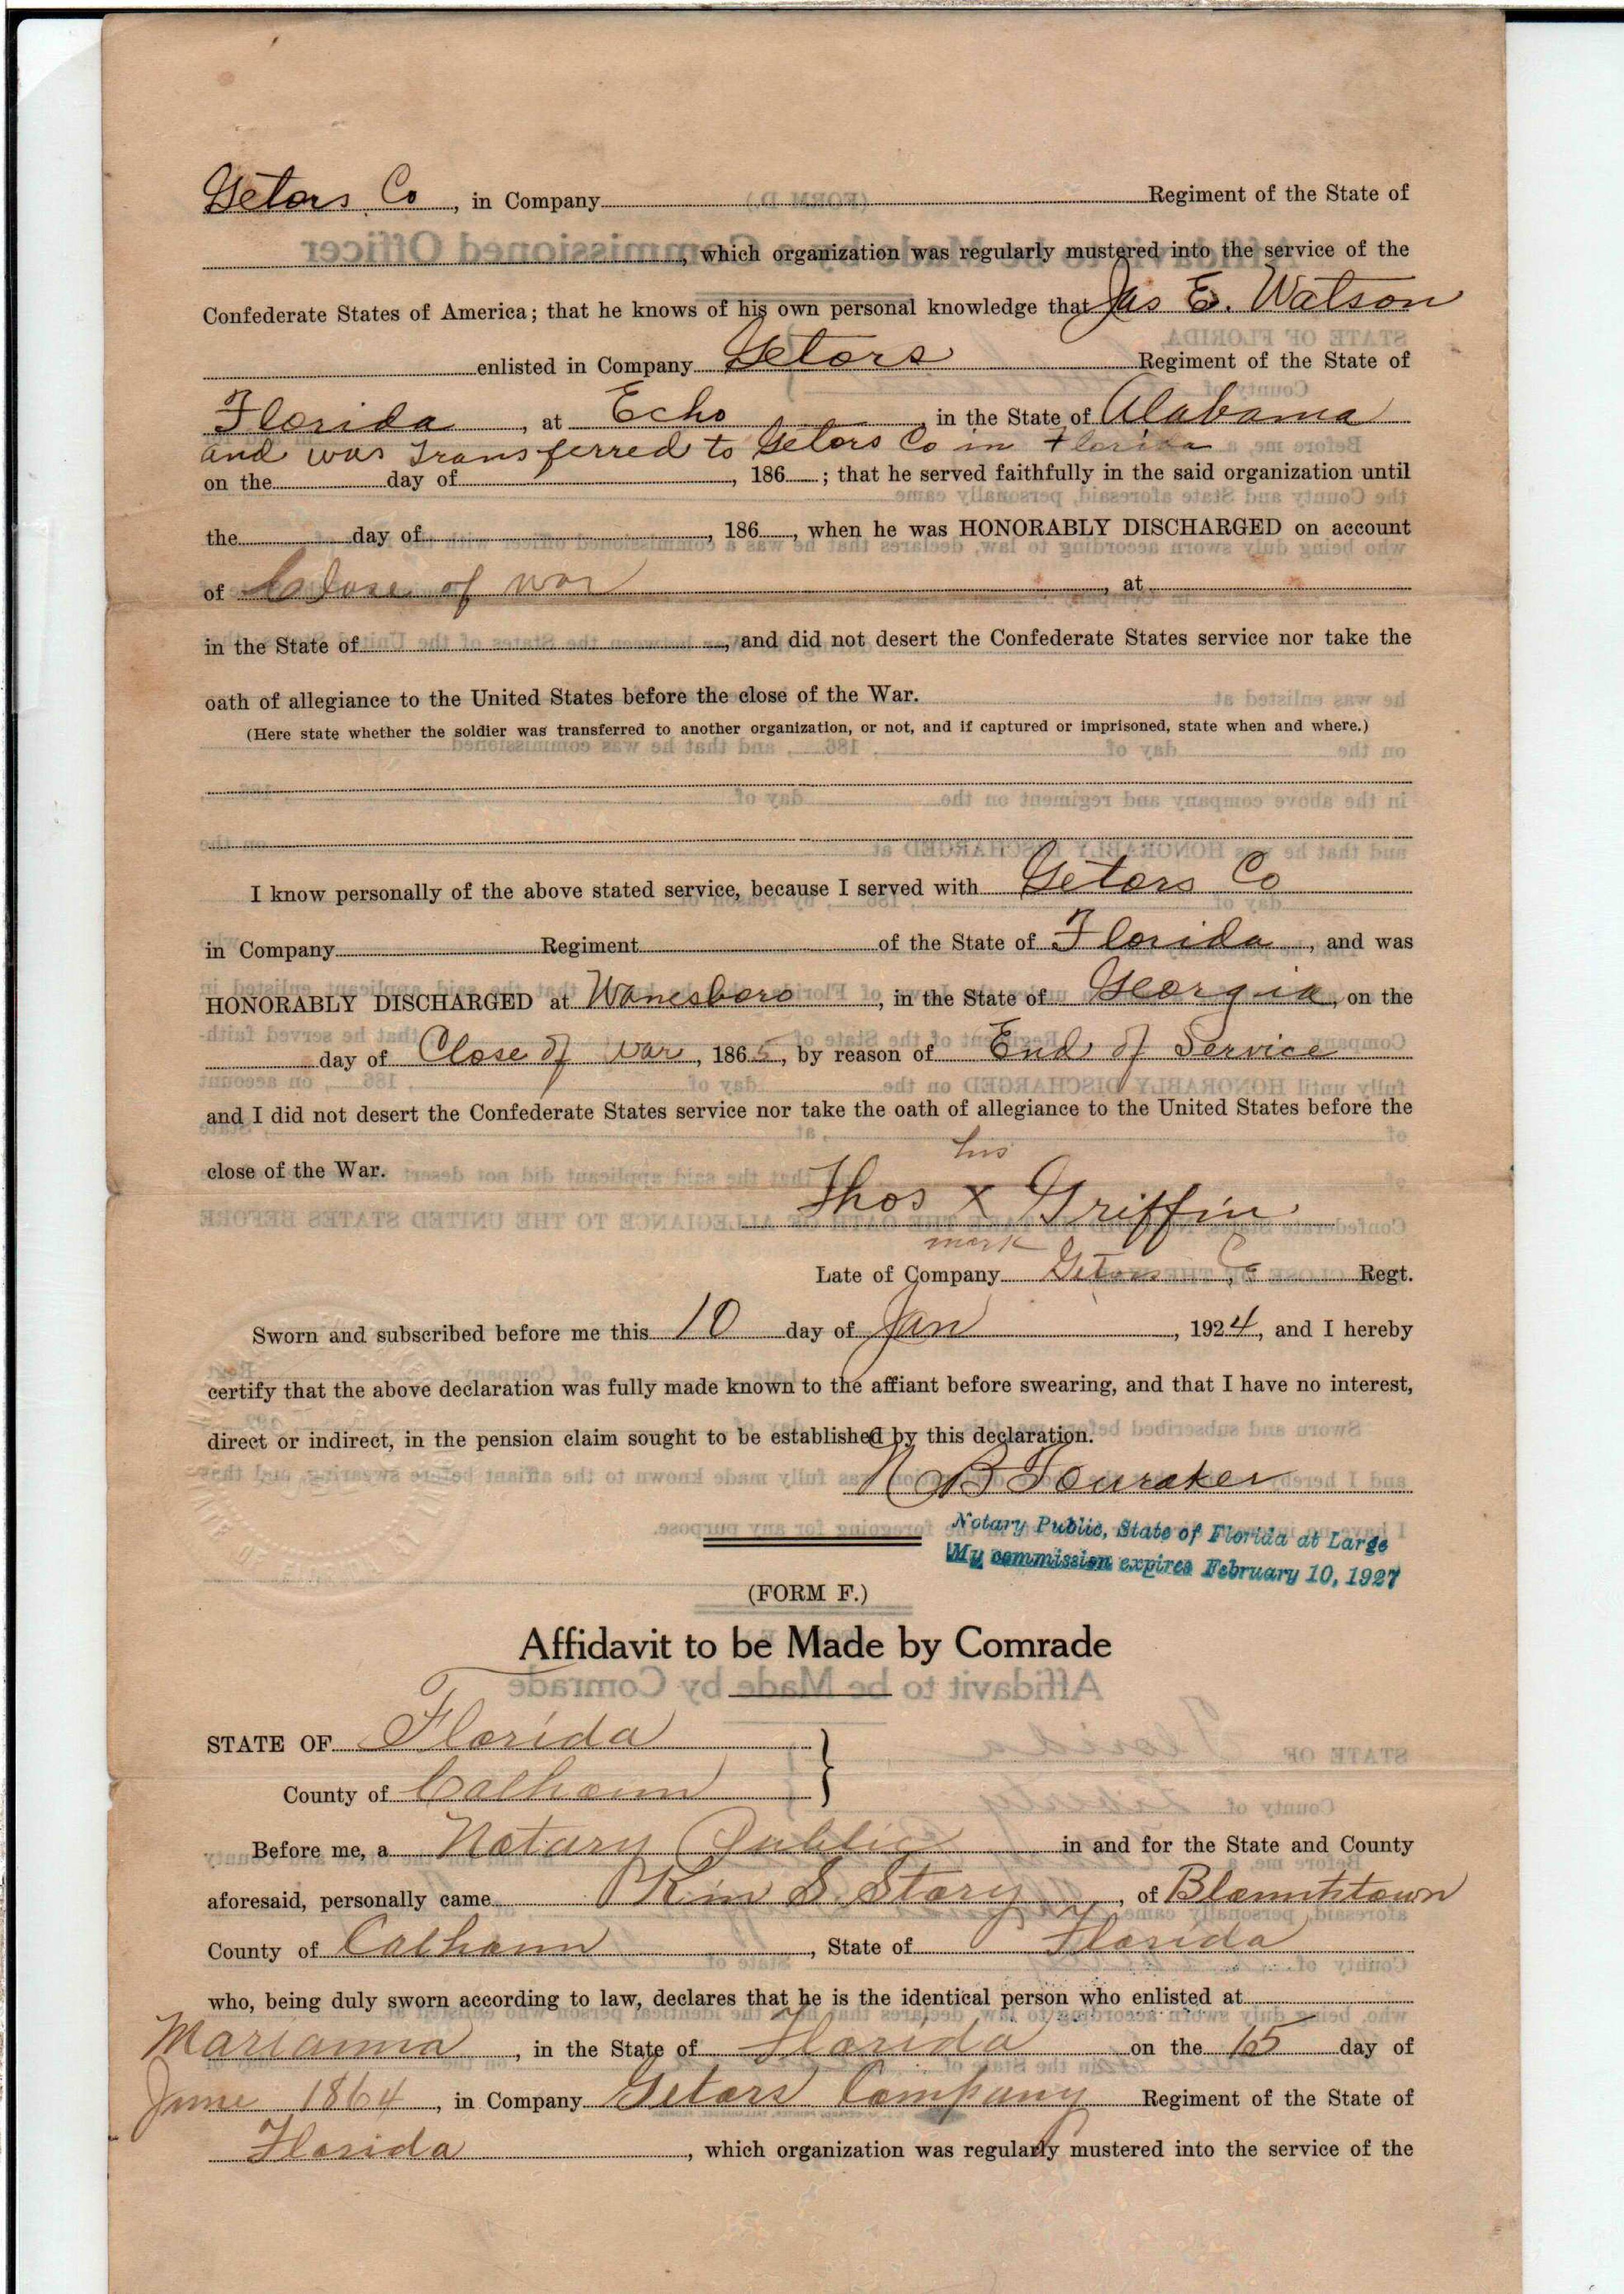 Getors Co, in Company Regiment of the State of
, which organization was regularly mustered into the service of the
Confederate States of America; that he knows of his own personal knowledge that Jas E. Watson
enlisted in Company Getors Regiment of the State of
Florida, at Echo, in the State of Alabama
and was Transferred to Getors Co in Florida
on the day of , 186 ; that he served faithfully in the said organization until
the day of , 186 , when he was HONORABLY DISCHARGED on account
of Close of war , at
in the State of , and did not desert the Confederate States service nor take the
oath of allegiance to the United States before the close of the War.
(Here state whether the soldier was transferred to another organization, or not, and if captured or imprisoned, state when and where.)
I know personally of the above stated service, because I served with Getors Co
in Company Regiment of the State of Florida, and was
HONORABLY DISCHARGED at Wanesboro, in the State of Georgia, on the
day of Close of War, 1865, by reason of End of Service
and I did not desert the Confederate States service nor take the oath of allegiance to the United States before the
close of the War.
his
Thos X Griffin
mark
Late of Company Getors Co Regt.
Sworn and subscribed before me this 10 day of Jan, 1924, and I hereby
certify that the above declaration was fully made known to the affiant before swearing, and that I have no interest,
direct or indirect, in the pension claim sought to be established by this declaration.
B
Notary Public, State of Florida at Large
My commission expires February 10, 1927
(FORM F.)
Affidavit to be Made by Comrade
STATE OF Florida
County of Calhoun
Before me, a Notary Public in and for the State and County
aforesaid, personally came S. Story, of Blountstown
County of Calhoun, State of Florida
who, being duly sworn according to law, declares that he is the identical person who enlisted at
Marianna, in the State of Florida on the 15 day of
June 1864, in Company Getors Company Regiment of the State of
Florida, which organization was regularly mustered into the service of the